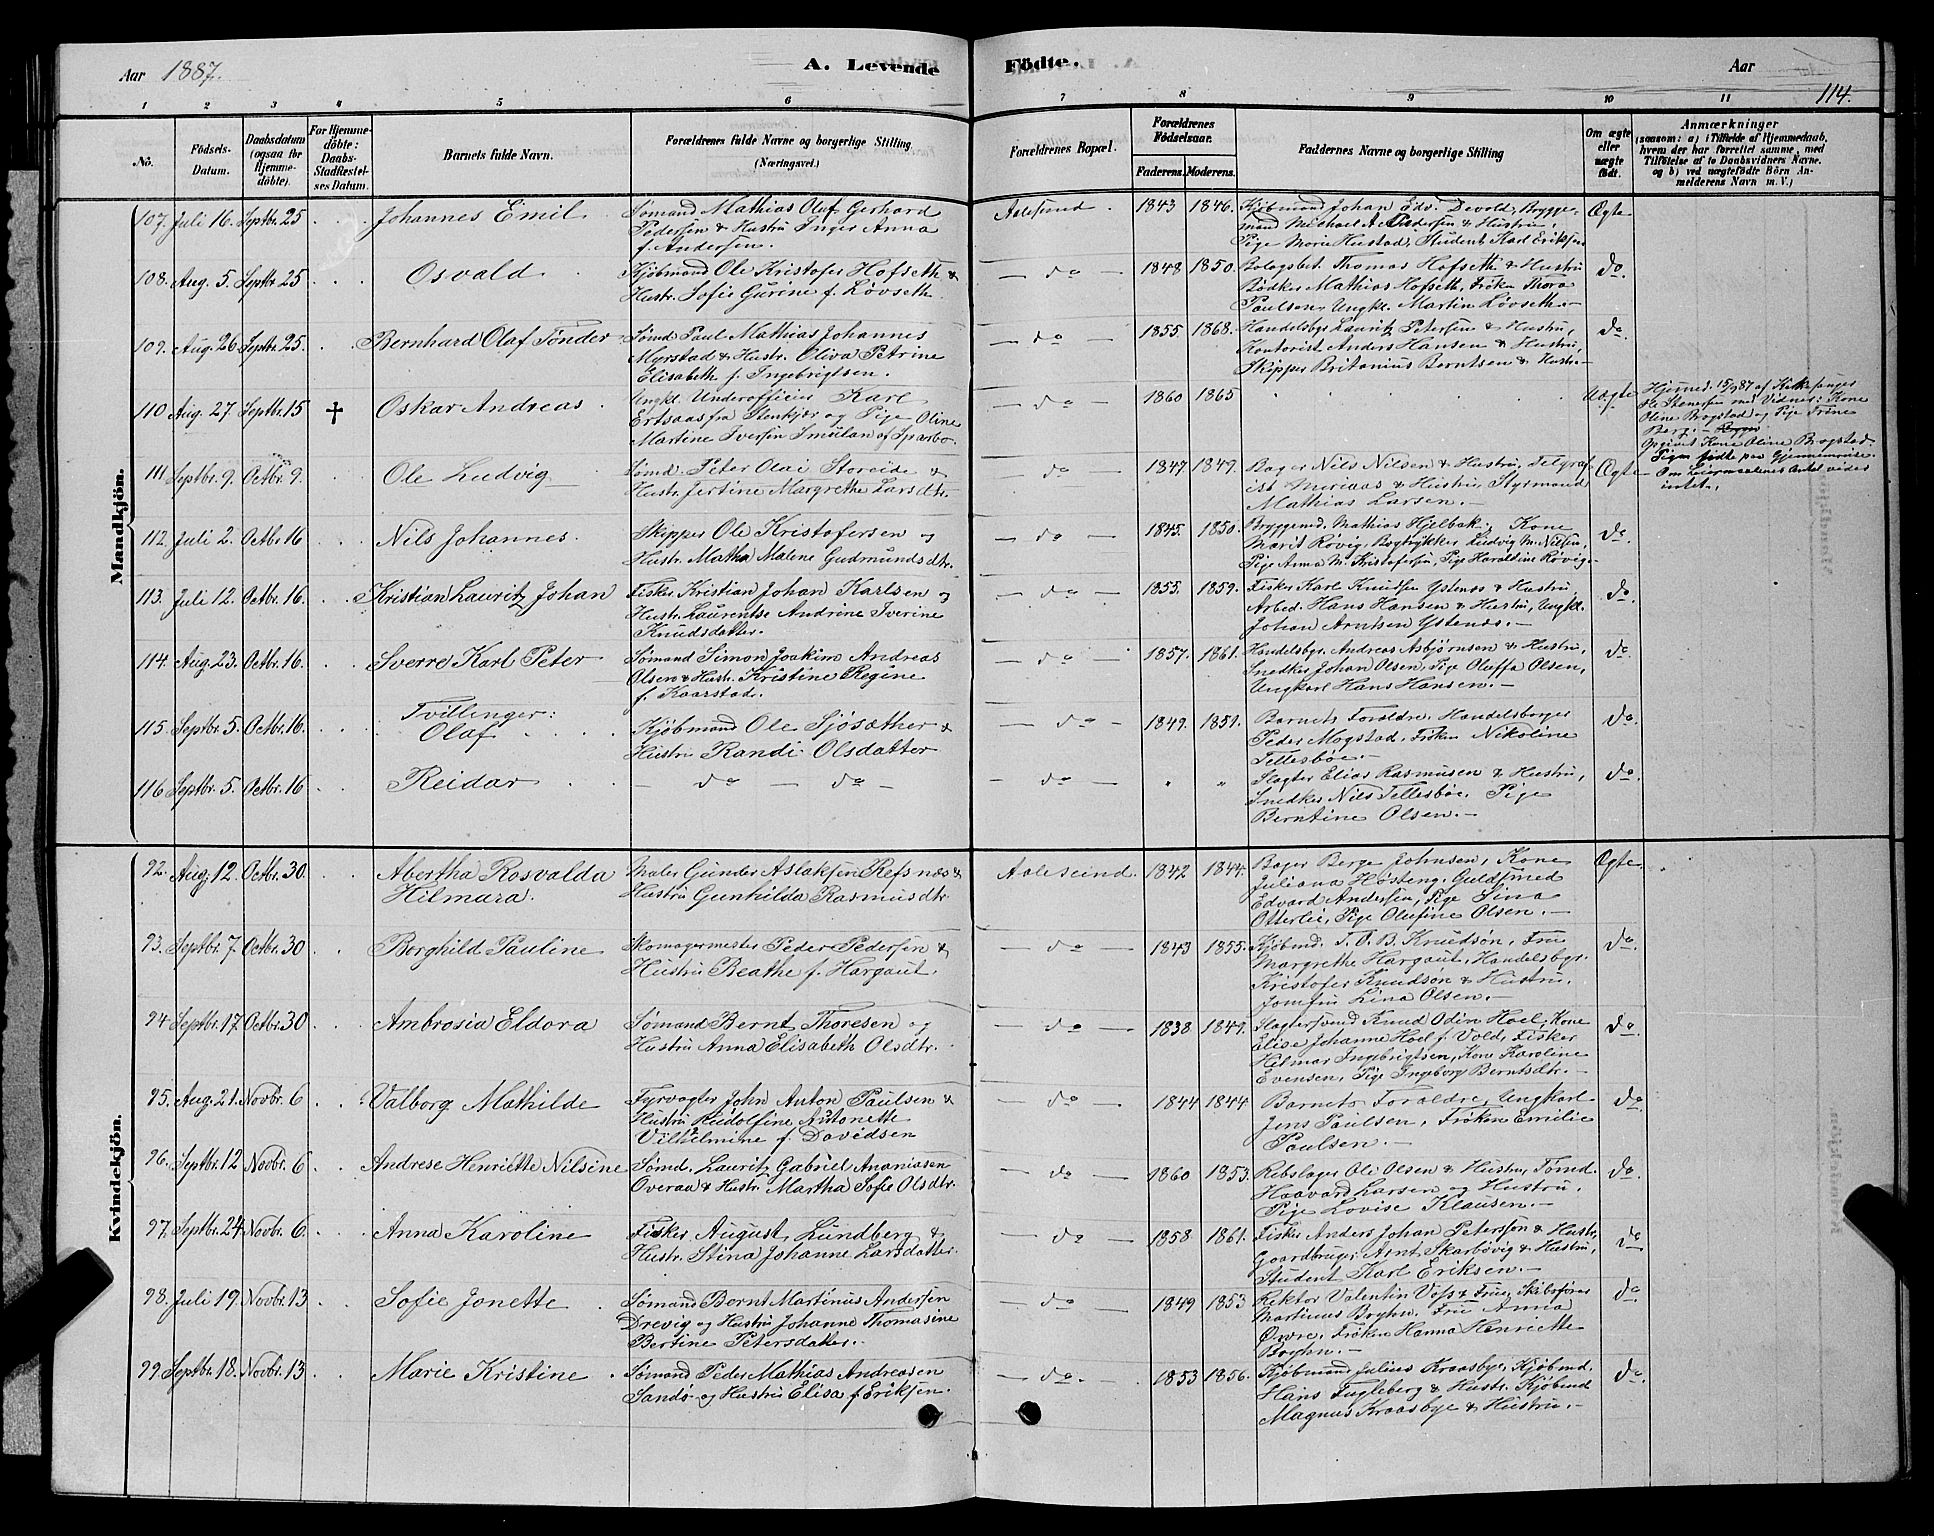 Aar 1887. A. Levende Födte. Aar
114.
1 2 3 4 5 6 7 8 9 10 11
No. Födsels-Datum. Daabsdatum (ogsaa for Hjemmedöbte). For Hjemmedöbte: Daabs-Stadfæstelses Datum. Barnets fulde Navn. Forældrenes fulde Navne og borgerlige Stilling (Næringsvei.) Forældrenes Bopæl. Forældrenes Födselsaar. Faderens. Moderens. Faddernes Navne og borgerlige Stilling Om ægte eller uægte födt. Anmærkninger
(saasom: a) i Tilfælde af Hjemmedaab,
hvem der har forrettet samme, med
Tilföielse af to Daabsvidners Navne.
og b) ved uægtefödte Börn An-
melderens Navn m. V.)
Mandkjön.
107. Juli 16. Septbr. 25 Johannes Emil Sømand Mathias Olaf Gerhard
Pedersen & Hustru Inger Anna
f. Andersen. Aalesund. 1843 1846. Kjöbmand Johan Edv. Devold, Brygge-
mand Michael A Pedersen & Hustru,
Pige Marie Hustad, Student Karl Eriksen Ægte
108. Aug. 5. Septbr 25 Osvald Kjöbmand Ole Kristofer Hofseth &
Hustr. Sofie Gurine f. Løvseth. do 1848 1850. Bologsbet. Thomas Hofseth & Hustru
Bødker Mathias Hofseth, Frøken Thora
Paulsen, Ungkl. Martin Løvseth. do
109. Aug. 26 Septbr. 25. Bernhard Olaf Tønder Sømd. Paul Mathias Johannes
Myrstad & Hustr. Oliva Petrine
Elisabeth f. Ingebrigtsen. do 1855 1868. Handelsbgr. Lauritz Petersen & Hustru,
Kontorist Anders Hansen & Hustru,
Skipper Britanius Berntsen & Hustr. do
110 Aug. 27 Septbr. 15 † Oskar Andreas Ungkl. Underofficier Karl
Ertsaas fra Stenkjær og Pige Oline
Martine Iversen Smulan af Sparbo. do 1860 1865 Uægte
Hjemmed. 15/9 87 af Kirkesanger
Ole Stenersen med Vidner: Kone
Oline Brogstad og Pige Trine
Berg.
Opgivet Kone Oline Brogstad
Pigen fødte paa Gjennemreise.
Om Leiermaalenes Antal vides
intet.
111 Septbr. 9. Octbr. 9. Ole Ludvig Sømd. Peter Olai Storeide &
Hustr. Jertine Margrethe Larsdtr. do 1847 1849. Bager Nils Nilsen & Hustru, Telgraf-
ist Meriaas & Hustru, Styrmand
Mathias Larsen. Ægte
112. Juli 2. Octbr 16 Nils Johannes. Skipper Ole Kristofersen og
Hustr. Martha Malene Gudmundsdtr. do 1845. 1850. Bryggemd. Mathias Hjelbak, Kone
Marit Røvig, Bogtrykker Ludvig M. Nilsen,
Pige Anna M. Kristofersen, Pige Haraldine Røvig do.
113. Juli 12. Octbr. 16. Kristian Lauritz Johan Fisker Kristian Johan Karlsen og
Hustr. Laurentse Andrine Iverine
Knudsdatter. do 1855. 1859. Fisker Karl Knutsen Ystenes & Hustru
Arbed. Hans Hansen & Hustru, Ungkl.
Johan Arntsen Ystenes. do.
114. Aug. 23. Octbr. 16. Sverre Karl Peter Sømand Simon Joakim Andreas
Olsen & Hustr. Kristine Regine
f. Kaarstad. do 1857. 1861. Handelsbgr. Andreas Asbjørnsen & Hustru,
Snedker Johan Olsen, Pige Oluffa Olsen,
Ungkarl Hans Hansen. do
Tvillinger:
115. Septbr. 5. Octbr. 16. Olaf Kjöbmand Ole Sjøsæther &
Hustru Randi Olsdatter do 1849. 1851. Barnets Forældre. Handelsborger
Peder Mogstad, Frøken Nikoline
Tellesbøe. do
116 Septbr. 5. Octbr. 16 Reidar do do do " " Slagter Elias Rasmusen & Hustru,
Snedker Nils Tellesbøe, Pige
Berntine Olsen. do
Kvindekjön.
92. Aug. 12. Octbr. 30. Abertha Rosvalda
Hilmara. Maler Gunder Aslaksen Refsnæs &
Hustru Gunhilda Rasmusdtr. Aalesund. 1842 1844. Bager Berge Johnsen, Kone
Juliana Høsteng, Guldsmed
Edvard Andersen, Pige Sina
Otterlei, Pige Olufine Olsen. Ægte
93. Septbr. 7. Octbr. 30 Borghild Pauline Skomagermester Peder Pedersen &
Hustru Beathe f. Hargaut. do 1843 1855. Kjöbmd. T. O. B. Knudsøn, Frue
Margrethe Hargaut, Handelsbgr.
Kristofer Knudsøn & Hustru,
Jomfru Lina Olsen. do.
94 Septbr. 17. Octbr. 30 Ambrosia Eldora Sømand Bernt Thoresen og
Hustru Anna Elisabeth Olsdtr. do 1838 1849. Slagtersvend Knud Odin Hoel, Kone
Elise Johanne Hoel f. Vold, Fisker
Hilmar Ingebrigtsen, Kone Karoline
Evensen, Pige Ingeborg Berntsdtr. do
95. Aug. 21. Novbr. 6 Valborg Mathilde Fyrvogter John Anton Paulsen &
Hustru Rudolfine Antonette
Vilhelmine f. Davidsen do 1844 1844 Barnets Forældre, Ungkarl
Jens Paulsen, Frøken Emilie
Paulsen. do
96. Septbr. 12 Novbr. 6 Andrese Henriette Nilsine Sømd. Lauritz Gabriel Ananiasen
Overaa & Hustr. Martha Sofie Olsdtr. do 1860 1853. Rebslager Ole Olsen & Hustru, Tømd.
Haavard Larsen og Hustru,
Pige Lovise Klausen. do.
97. Septbr. 24. Novbr. 6. Anna Karoline Fisker August Lundberg &
Hustr. Stina Johanne Larsdatter. do 1858 1861. Fisker Anders Johan Peterssøn & Hustr,
Gaardbruger Arnt Skarbøvig & Hustru,
Student Karl Eriksen. do
98. Juli 19. Novbr. 13 Sofie Jonette Sømand Bernt Martinus Andersen
Drevig og Hustru Johanne Thomasine
Bertine Petersdatter. do 1849 1853 Rektor Valentin Voss & Frue, Skibsfører
Martinus Boghn, Frue Anna
Øwre, Frøken Hanna Henriette
Boghn. do
99. Septbr. 18. Novbr. 13 Marie Kristine Sømand Peder Mathias Andreasen
Sandø og Hustru Elisa f. Eriksen. do. 1853 1856. Kjöbmand Julius Kraasbye, Kjöbmd.
Hans Fugleberg & Hustr. Kjöbmd
Magnus Kraasbye & Hustru. do.